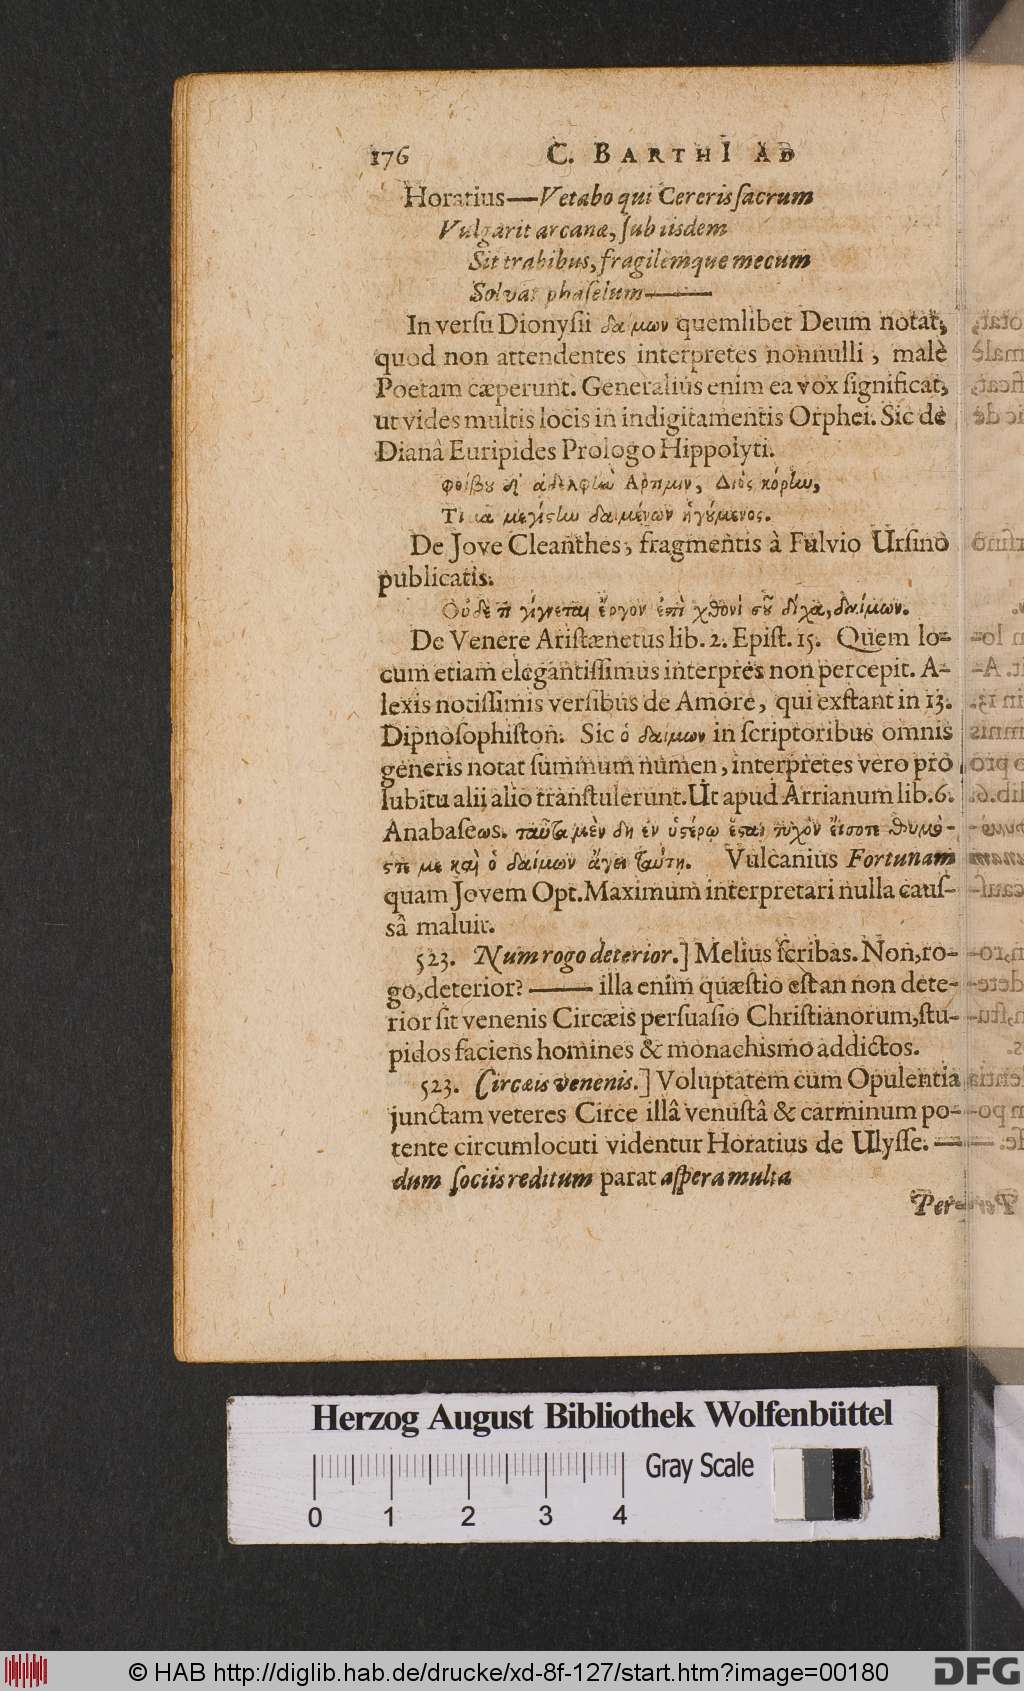 176 C. BARTHI AD
Horatius—Vetabo qui Cereris ſacrum
Vulgarit arcanæ, ſub iisdem
Sit trabibus, fragilemque mecum
Solvat phaſelum——
In verſu Dionyſii δαίμων quemlibet Deum notat,
quod non attendentes interpretes nonnulli, malè
Poetam cæperunt. Generalius enim ea vox ſignificat,
ut vides multis locis in indigitamentis Orphei. Sic de
Dianâ Euripides Prologo Hippolyti.
φοίβου δ' ἀδελφὴν Αρτεμιν, Διὸς κόρην,
Τιμᾶ μεγίστην δαιμόνων ἡγούμενος.
De Jove Cleanthes, fragmentis à Fulvio Urſino
publicatis.
Οὐδέ τι γίγνεται ἔργον ἐπὶ χθονὶ σοῦ δίχα, δαίμων.
De Venere Ariſtænetus lib. 2. Epiſt. 15. Quem lo-
cum etiam elegantiſſimus interpres non percepit. A-
lexis notiſſimis verſibus de Amore, qui exſtant in 13.
Dipnoſophiſton. Sic ὁ δαίμων in ſcriptoribus omnis
generis notat ſummum numen, interpretes vero pro
lubitu alii alio tranſtulerunt. Ut apud Arrianum lib. 6.
Anabaſeως. ταῦτα μὲν δὴ ἐν ὑστέρῳ ἔσται τυχὸν εἴσοτε θυμό-
ς τέ με καὶ ὁ δαίμων ἄγει ταύτη. Vulcanius Fortunam
quam Jovem Opt. Maximum interpretari nulla cauſ-
sâ maluit.
523. Num rogo deterior.] Melius ſcribas. Non, ro-
go, deterior? —— illa enim quæſtio eſt an non dete-
rior ſit venenis Circæis perſuaſio Chriſtianorum, ſtu-
pidos faciens homines & monachismo addictos.
523. Circæis venenis.] Voluptatem cum Opulentia
junctam veteres Circe illâ venuſtâ & carminum po-
tente circumlocuti videntur Horatius de Ulyſſe. ——
dum ſociis reditum parat aſpera multa
Per-
Herzog August Bibliothek Wolfenbüttel
Gray Scale
0 1 2 3 4
© HAB http://diglib.hab.de/drucke/xd-8f-127/start.htm?image=00180
DFG